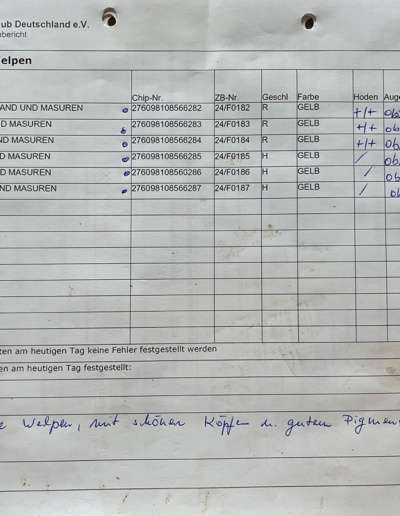 ub Deutschland e.V.
bericht
elpen
Chip-Nr. ZB-Nr. Geschl Farbe Hoden Auge
AND UND MASUREN 276098108566282 24/F0182 R GELB +/+ ob
D MASUREN 276098108566283 24/F0183 R GELB +/+ ob
ND MASUREN 276098108566284 24/F0184 R GELB +/+ ob
D MASUREN 276098108566285 24/F0185 H GELB / ob
ND MASUREN 276098108566286 24/F0186 H GELB / ob
ND MASUREN 276098108566287 24/F0187 H GELB / ob
ten am heutigen Tag keine Fehler festgestellt werden
en am heutigen Tag festgestellt:
e Welpen, mit schönen Köpfen u. gutem Pigmen